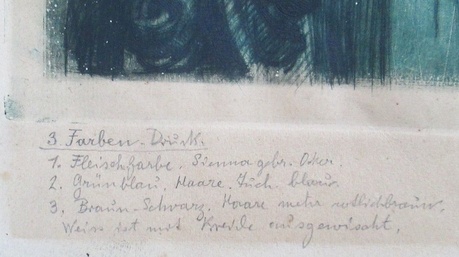 3 Farben-Druck.
1. Fleischfarbe. Sienna gbr. Oker.
2. Grünblau, Haare. Tuch blau.
3. Braun-Schwarz, Haare mehr rötlichbraun.
Weiss ist mit Kreide ausgewischt.